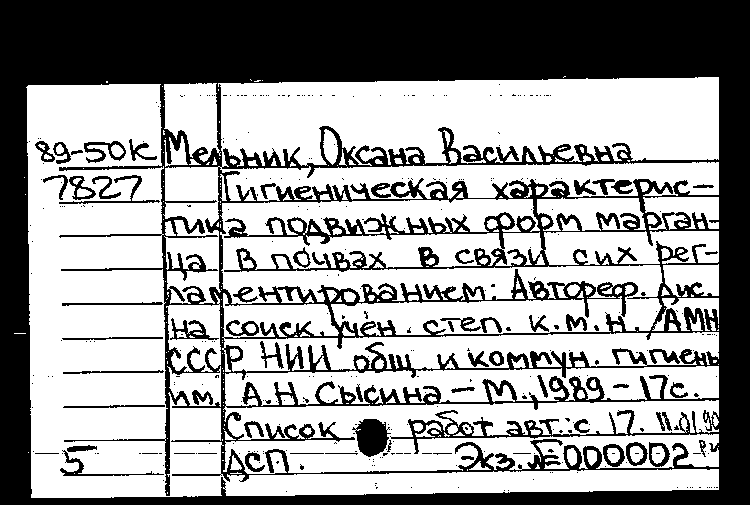 89-50К Мельник, Оксана Васильевна
7827 Гигиеническая характерис-
тика подвижных форм марган-
ца в почвах в связи с их рег-
ламентированием: Автореф. дис.
на соиск. учен. степ. к.м.н. /АМН
СССР, НИИ общ. и коммун. гигиены
им. А.Н. Сысина. - М., 1989 - 17с.
Список работ авт.: с. 17. 11.01.90
5 ДСП. Экз. № 000002